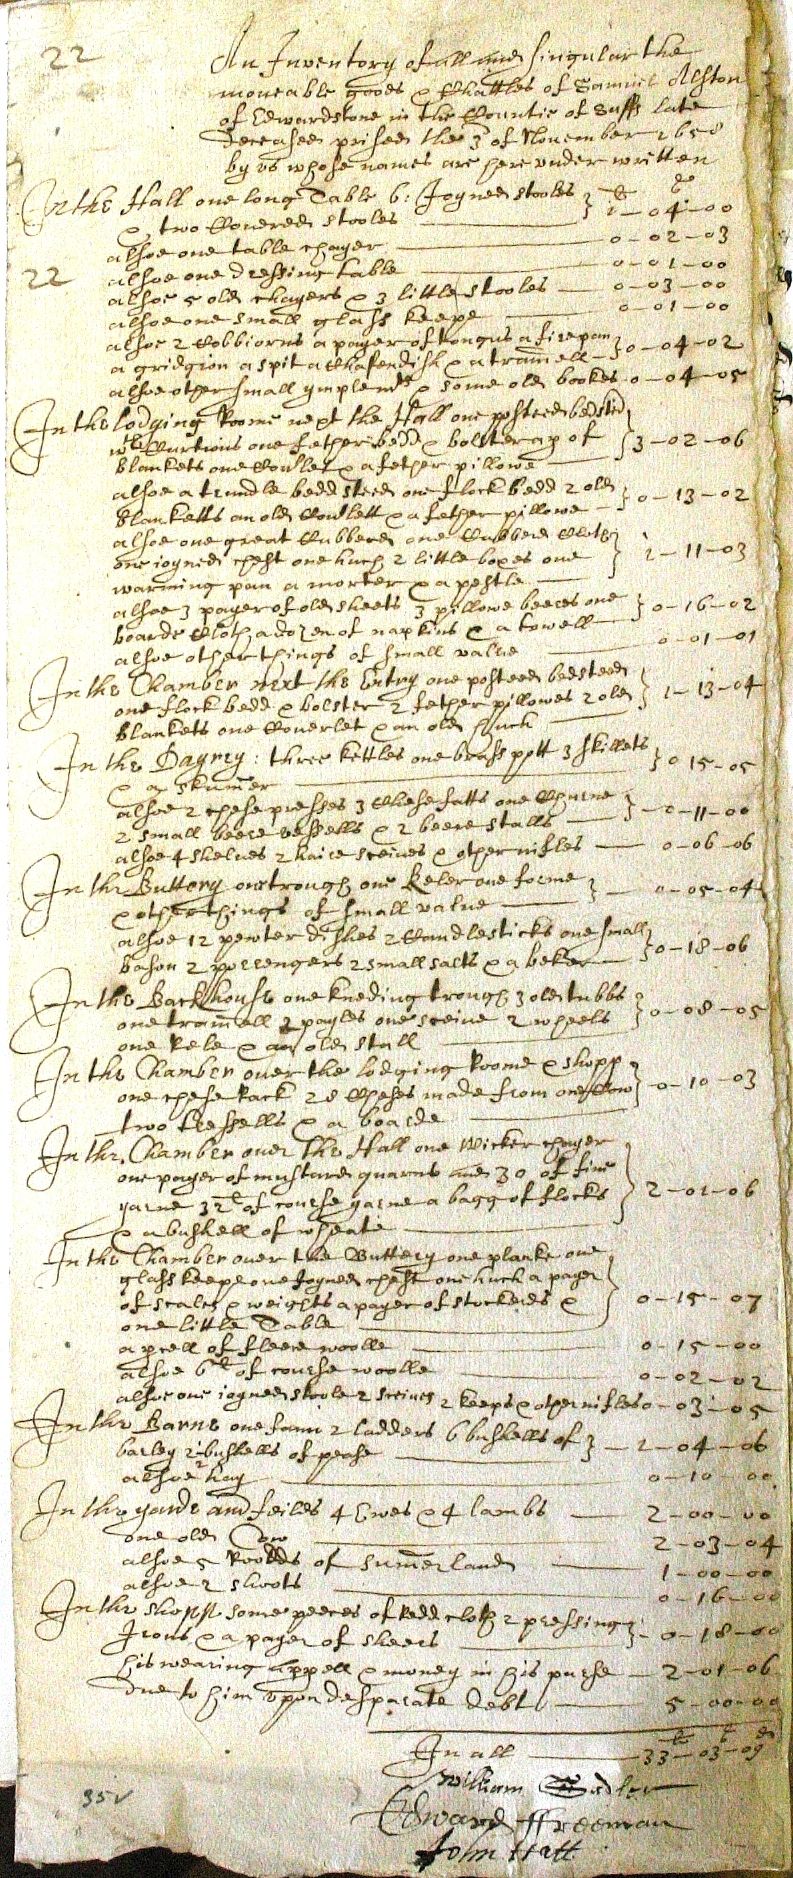 22
An Inventory of all and singular the
moueable goods & Chattles of Samuel Alston
of Edwardstone in the Countie of Suff late
deceased prised the 3 of Nouember 1658
by vs whose names are here vnder written
In the Hall one long Table 6 Joyned stooles
& two Couered stooles 1-04-00
alsoe one table chayer 0-02-03
22
alsoe one dressing table 0-01-00
alsoe 5 old chayers & 3 little stooles 0-03-00
alsoe one small glass keepe 0-01-00
alsoe 2 Cobbiorns a payer of tongus a firepan
a gridgion a spit a Chafendish & a tramell 0-04-02
alsoe other small ymplemts & some old bookes 0-04-05
In the lodging Roome next the Hall one posteed bedsted
wth Curtins one fether bedd & bolster a p of
blankets one Couerlet & a fether pillowe 3-02-06
alsoe a trundle bedd steed one flock bedd 2 old
blanketts an old Couerlett & a fether pillowe 0-13-02
alsoe one great Cubberd one Cubberd Cloth
one joyned chest one huch 2 little boxes one
warming pan a morter & a pestle 1-11-03
alsoe 3 payer of old sheets 3 pillowe beeres one
boarde Cloth a dozen of napkins & a towell 0-16-02
alsoe other things of small value 0-01-01
In the Chamber next the Entry one posteed bedsteed
one flock bedd & bolster 2 fether pillowes 2 old
blankets one Couerlet & an old huch 1-13-04
In the Dayrey: three kettles one brass pott 3 skillets
& a skumer 0 15-05
alsoe 2 chese presses 3 Chese fatts one Churne
2 small beere vessells & 2 beere stalls 0-11-00
alsoe 4 shelues 2 haire seiues & other nifles 0-06-06
In the Buttery one trough one keler one forme
& other things of small value 0-05-04
alsoe 12 pewter dishes 2 Candlesticks one small
bason 2 porrengers 2 small salts & a beker 0-18-06
In the Backhouse one kneding trough 3 old tubbs
one tramell 2 payles one seiue 2 wheels
one kele & an old stall 0-08-05
In the Chamber over the lodging Roome & shopp
one chese Rack 28 Cheses made from one Cow
two tressells & a boarde 0-10-03
In the Chamber over the Hall one Wicker chayer
one payer of mustard quarns and 30 of fine
yarne 32 l of course yarne a bagg of flocks
& a bushell of wheate 2-01-06
In the Chamber over the Buttery one planke one
glass keepe one Joyned chest one huch a payer
of scales & weights a payer of stockerds &
one little Table 0-15-07
a pcell of fleece woolle 0-15-00
alsoe 6 l of course woolle 0-02-02
alsoe one joyned stoole 2 seiues 2 keeps & other nifles 0-03-05
In the Barne one fann 2 ladders 6 bushells of
barley 2 bushells of pease 2-04-06
alsoe hay 0-10-00
In the yarde and feilds 4 Ewes & 4 lambs 2-00-00
one old Cow 2-03-04
alsoe 5 Roodds of sumerland 1-00-00
alsoe 2 shoots 0-16-00
In the shopp some peeces of Redd cloth 2 pressing
Irons & a payer of sheers 0-18-00
his wearing appell & money in his purse 2-01-06
due to him vpon desparate debts 5-00-00
In all 33-03-09
William
Edward ffreeman
John Hatt
35v